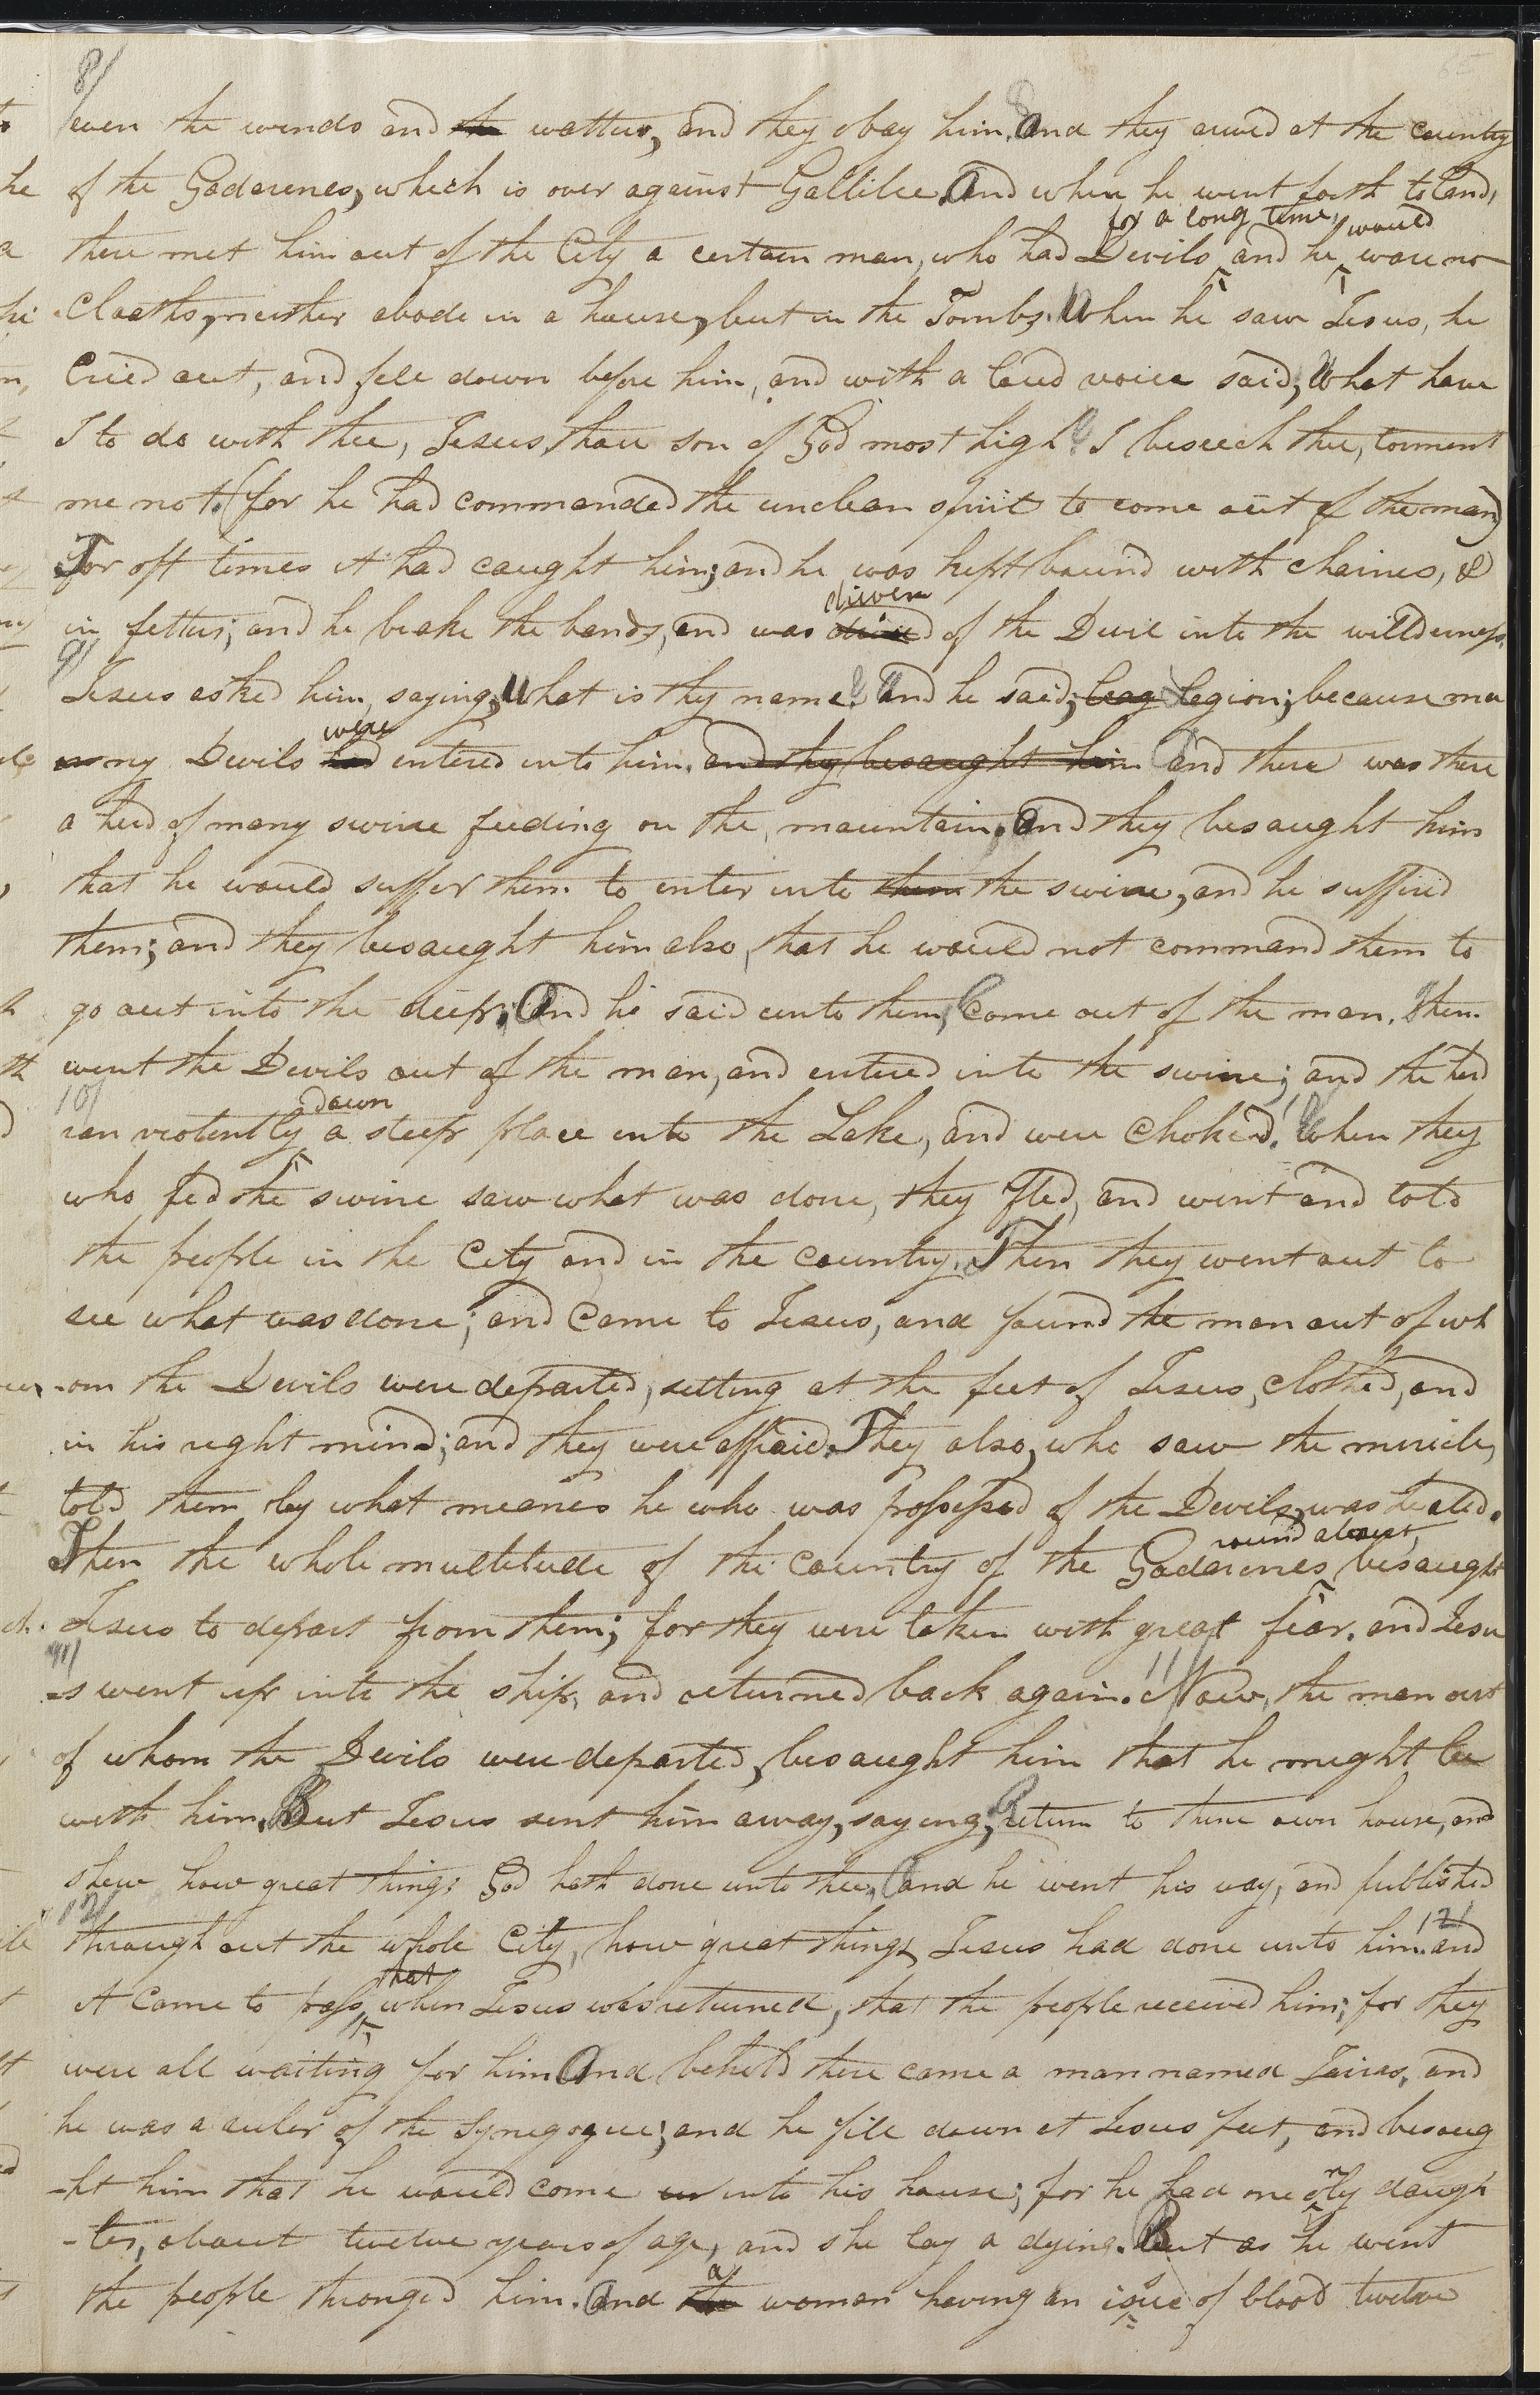 65
8/
even the winds and the watters, and they obay him. And they arived at the country
of the Gadarenes, which is over against Gallilee. And when he went forth to land,
for a long time, would
there met him out of the City a certain man, who had Devils and he ware no
Cloaths, neither abode in a house, but in the Tombs. When he saw Jesus, he
Cried out, and fell down before him, and with a loud voice said, What have
I to do with thee, Jesus, thou son of God most high? I beseech thee, torment
me not. (for he had commanded the unclean spirit to come out of the man)
For oft times it had caught him; and he was kept bound with chaines, &
driven
in fetters; and he brake the bands, and was drived of the Devil into the willderness.
9/
Jesus asked him, saying, What is thy name? And he said, leag Legion; because ma
were
ny Devils had entered into him. and they besaught him And there was there
a herd of many swine feeding on the mountain, and they besaught him
that he would suffer them to enter into them the swine, and he suffired
them; and they besaught him also, that he would not command them to
go out into the deep. And he said unto them, Come out of the man. Then
went the Devils out of the man, and entered into the swine; and the herd
10/
down
ran violently a steep place into the Lake, and were Choked. When they
who fed the swine saw what was done, they Fled, and went and told
the people in the City and in the country. Then they went out to
see what was done; and Came to Jesus, and found the man out of wh
-om the Devils were departed, setting at the feet of Jesus, clothed, and
in his right mind; and they were affraid. They also, who saw the miricle,
told them by what meanes he who was possessed of the Devils, was healed.
round about,
Then the whole multitude of the country of the Gadarenes besaught
Jesus to depart from them; for they were taken with great fear. and Jesu
11/
-s went up into the ship, and returned back again. 11/ Now, the man out
of whom the Devils were departed, besaught him that he might be
with him. But Jesus sent him away, saying, Return to thine own house, and
shew how great things God hath done unto thee, and he went his way, and published
12/
through out the whole City, how great things Jesus had done unto him. 12/ and
that
it Came to pass, when Jesus was returned, that the people received him; for they
were all waiting for him And behold there came a man named Jairas, and
he was a ruler of the Synegogue; and he fell down at Jesus feet, and besaug
-ht him that he would come in into his house; for he had one only daugh
-ter, about twelve years of age, and she lay a dying. But as he went
a
the people thronged him. And the woman having an isue of blood twelve